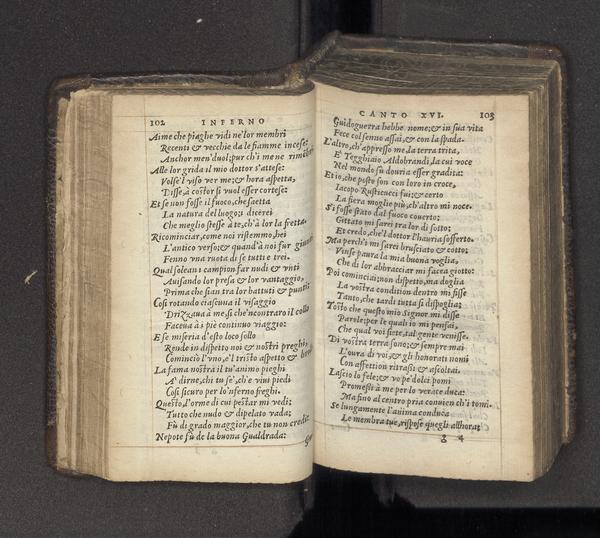 102 INFERNO
Aime che piaghe vidi ne'lor membri
Recenti & vecchie da le fiamme incese:
Anchor men'duol; pur ch'i me ne rimembri
Alle lor grida il mio dottor s'attese:
Volse'l viso ver me; & hora aspetta,
Disse, à costor si vuol esser cortese:
Et se non fosse il fuoco, che saetta
La natura del luogo; dicerei
Che meglio stesse à te, ch'à lor la fretta.
Ricominciar, come noi ristemmo, hei
L'antico verso; & quand'à noi fur giunti
Fenno una ruota di se tutti e trei.
Qual soleano i campion far nudi & unti
Avisando lor presa & lor vantaggio,
Prima che sian tra lor battuti & punti;
Cosi rotando ciascuna il visaggio
Drizzava a me, si che'n contraro il collo
Faceva à i piè continuo viaggio:
E se miseria d'esto loco sollo
Rende in dispetto noi & nostri preghi,
Cominciò l'uno, e'l tristo aspetto &
La fama nostra il tu'animo pieghi
A' dirne, chi tu se', ch'e vivi piedi
Cosi sicuro per lo'nferno freghi.
Questo, l'orme di cui pestar mi vedi;
Tutto che nudo & dipelato vada;
Fù di grado maggior, che tu non credi:
Nepote fù de la buona Gualdrada:
CANTO XVI. 103
Guidoguerra hebbe nome; & in sua vita
Fece col senno assai, & con la spada.
L'altro, ch'appresso me la terra trita,
E' Tegghiaio Aldobrandi, la cui voce
Nel mondo sù dovria esser gradita:
Et io, che posto son con loro in croce,
Iacopo Rusticucci fui; & certo
La fiera moglie più, ch'altro mi noce.
S'i fosse stato dal fuoco coverto;
Gittato mi sarei tra lor di sotto;
Et credo, che'l dottor l'havria sofferto.
Ma perch'i mi sarei brusciato & cotto;
Vinse paura la mia buona voglia,
Che di lor abbracciar mi facea giotto:
Poi cominciai; non dispetto, ma doglia
La vostra condition dentro mi fisse
Tanto, che tardi tutta si dispoglia;
Tosto che questo mio Signor mi disse
Parole; per le quali io mi pensai,
Che qual voi siete, tal gente venisse.
Di vostra terra sono; & sempre mai
L'ovra di voi, & gli honorati nomi
Con affettion ritrassi & ascoltai.
Lascio lo fele; & vo pe' dolci pomi
Promessi à me per lo verace duca:
Ma fino al centro pria convien ch'i tomi.
Se lungamente l'anima conduca
Le membra tue, rispose quegli allhora;
g 4